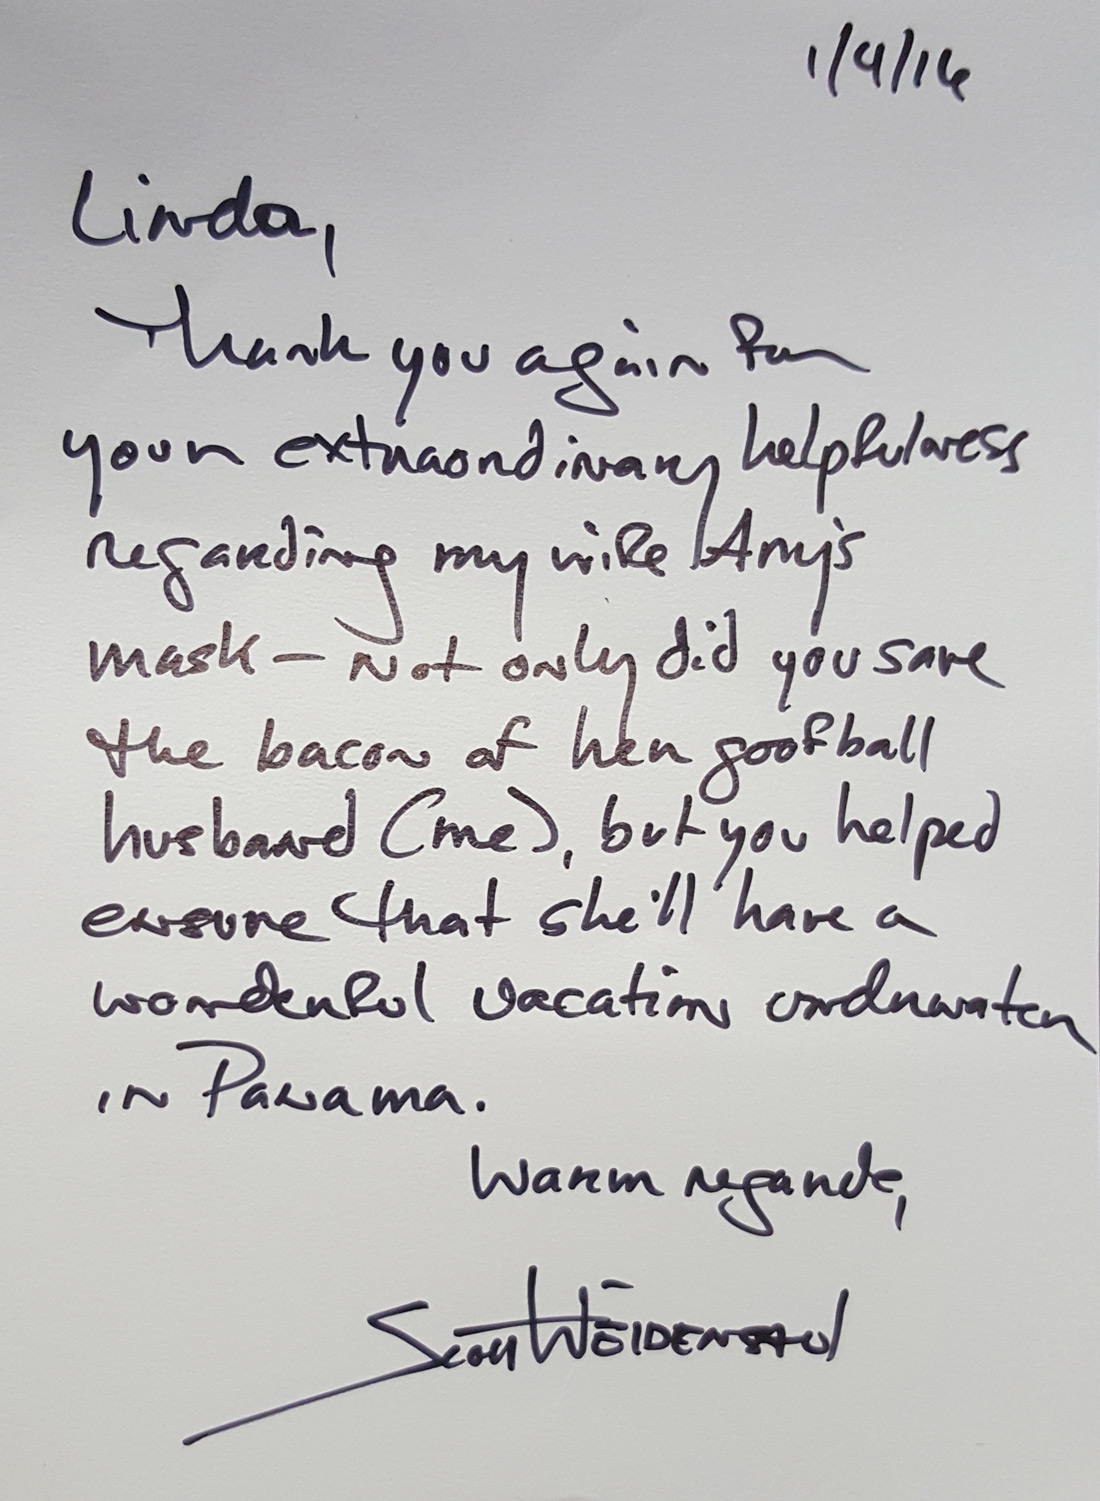 1/4/16
Linda,
Thank you again for
your extraordinary helpfulness
regarding my wife Amy's
mask — Not only did you save
the bacon of her goofball
husband (me), but you helped
ensure that she'll have a
wonderful vacation underwater
in Panama.
Warm regards,
Scott